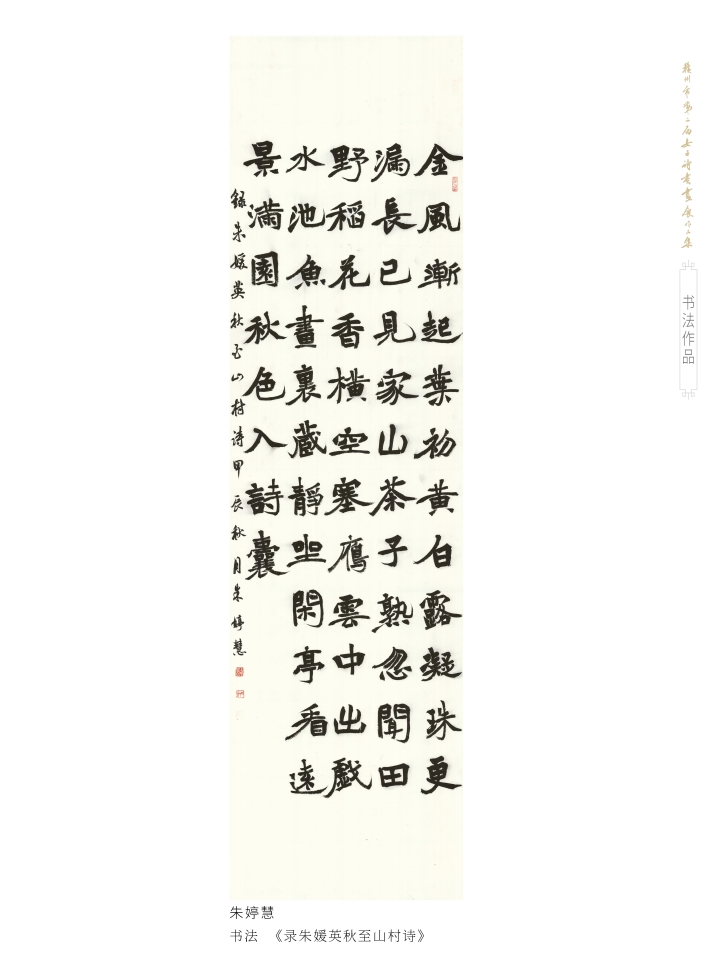 金風漸起葉初黄白露凝珠更
漏長已見家山茶子熟忽聞田
野稻花香横空塞鴈雲中出戲
水池魚畫裏藏靜坐閑亭看遠
景滿園秋色入詩囊
録朱媛英秋至山村诗甲辰秋月朱婷慧
赣州市第二届女子诗书画展作品集
书法作品
朱婷慧
书法 《录朱媛英秋至山村诗》